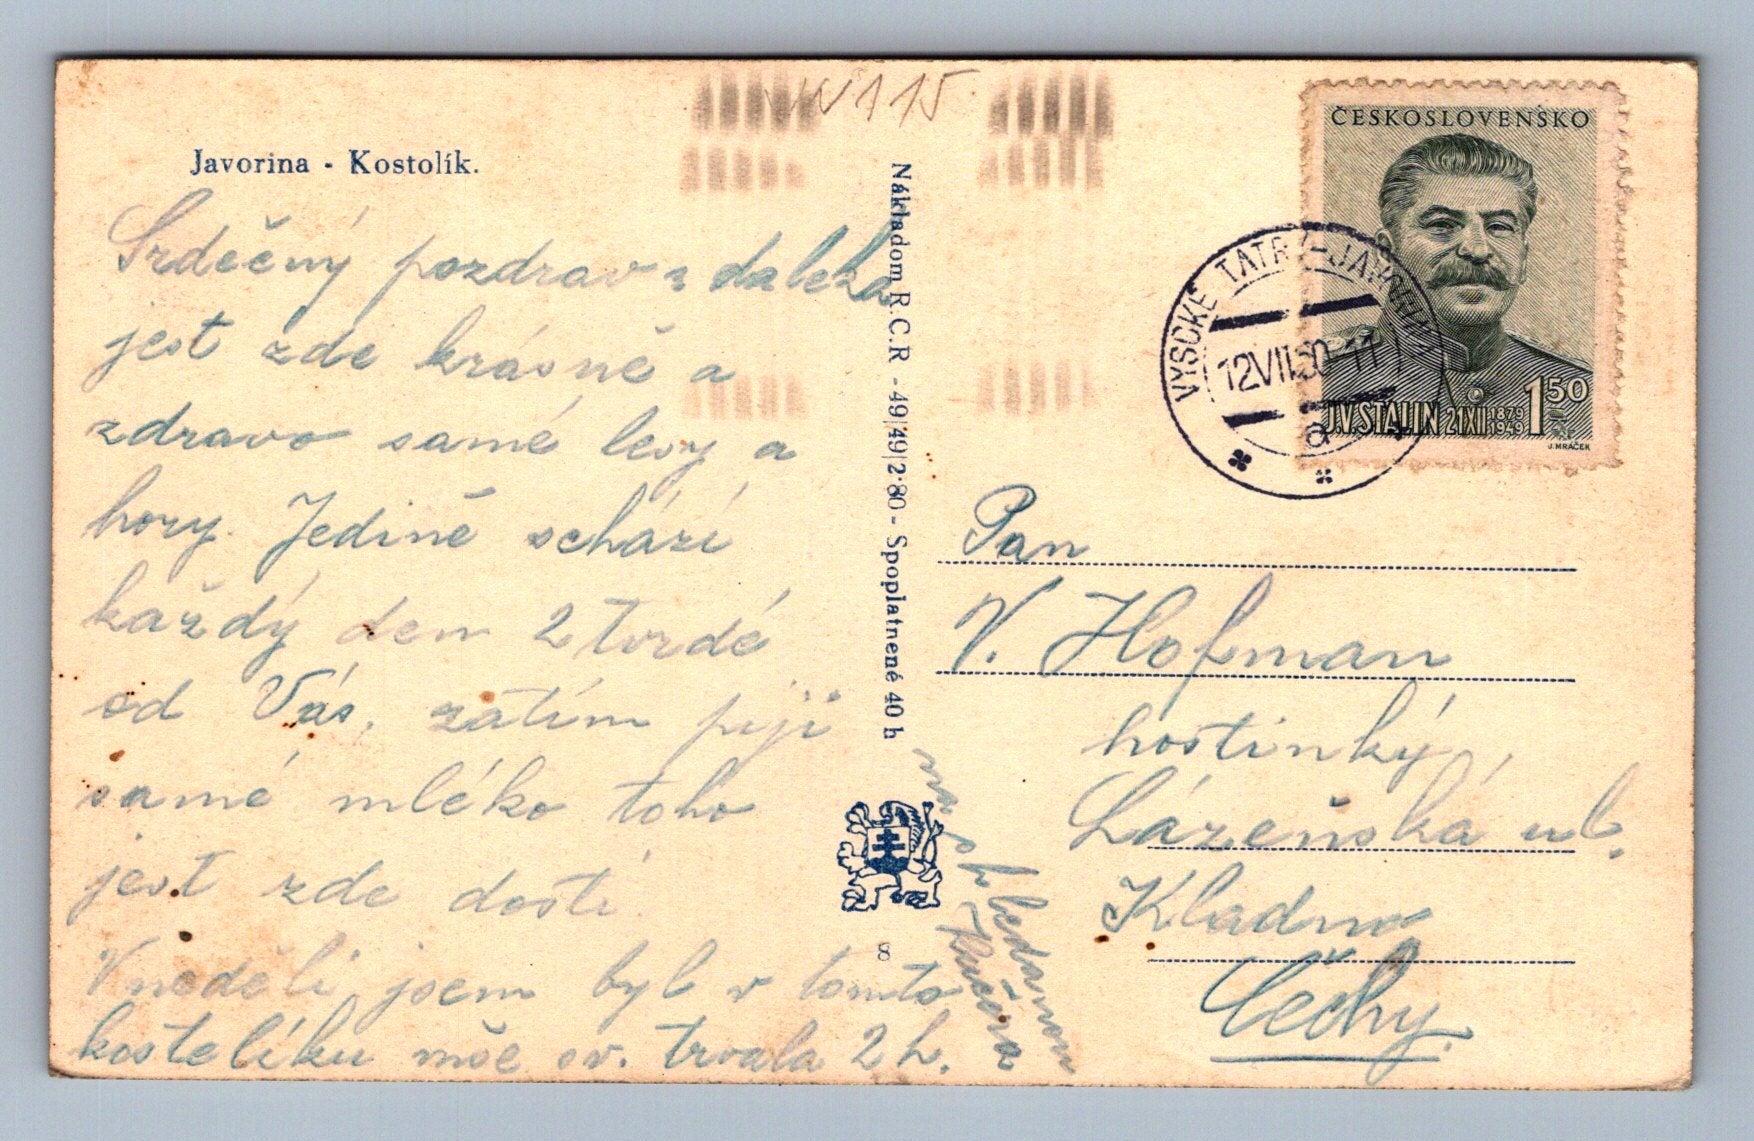 Javorina - Kostolík.
Srdečný pozdrav z daleka
jest zde krásně a
zdravo samé lesy a
hory. Jedině schází
každý den 2 tvrdé
od Vás, zatím piji
samé mléko toho
jest zde dosti.
V neděli jsem byl v tomto
kostelíku mše sv. trvala 2 h.
na shledanou
Kučera
Nákladom R.C.R - 49|49|2·80 - Spoplatnené 40 h
8
115
ČESKOSLOVENSKO
J.V. STALIN 21 XII 1879 1949 1 50
J. MRÁČEK
VYSOKÉ TATRY-JAVORINA
12 VII 50-11
a
Pan
V. Hofman
hostinký,
Lázeňská ul.
Kladno
Čechy